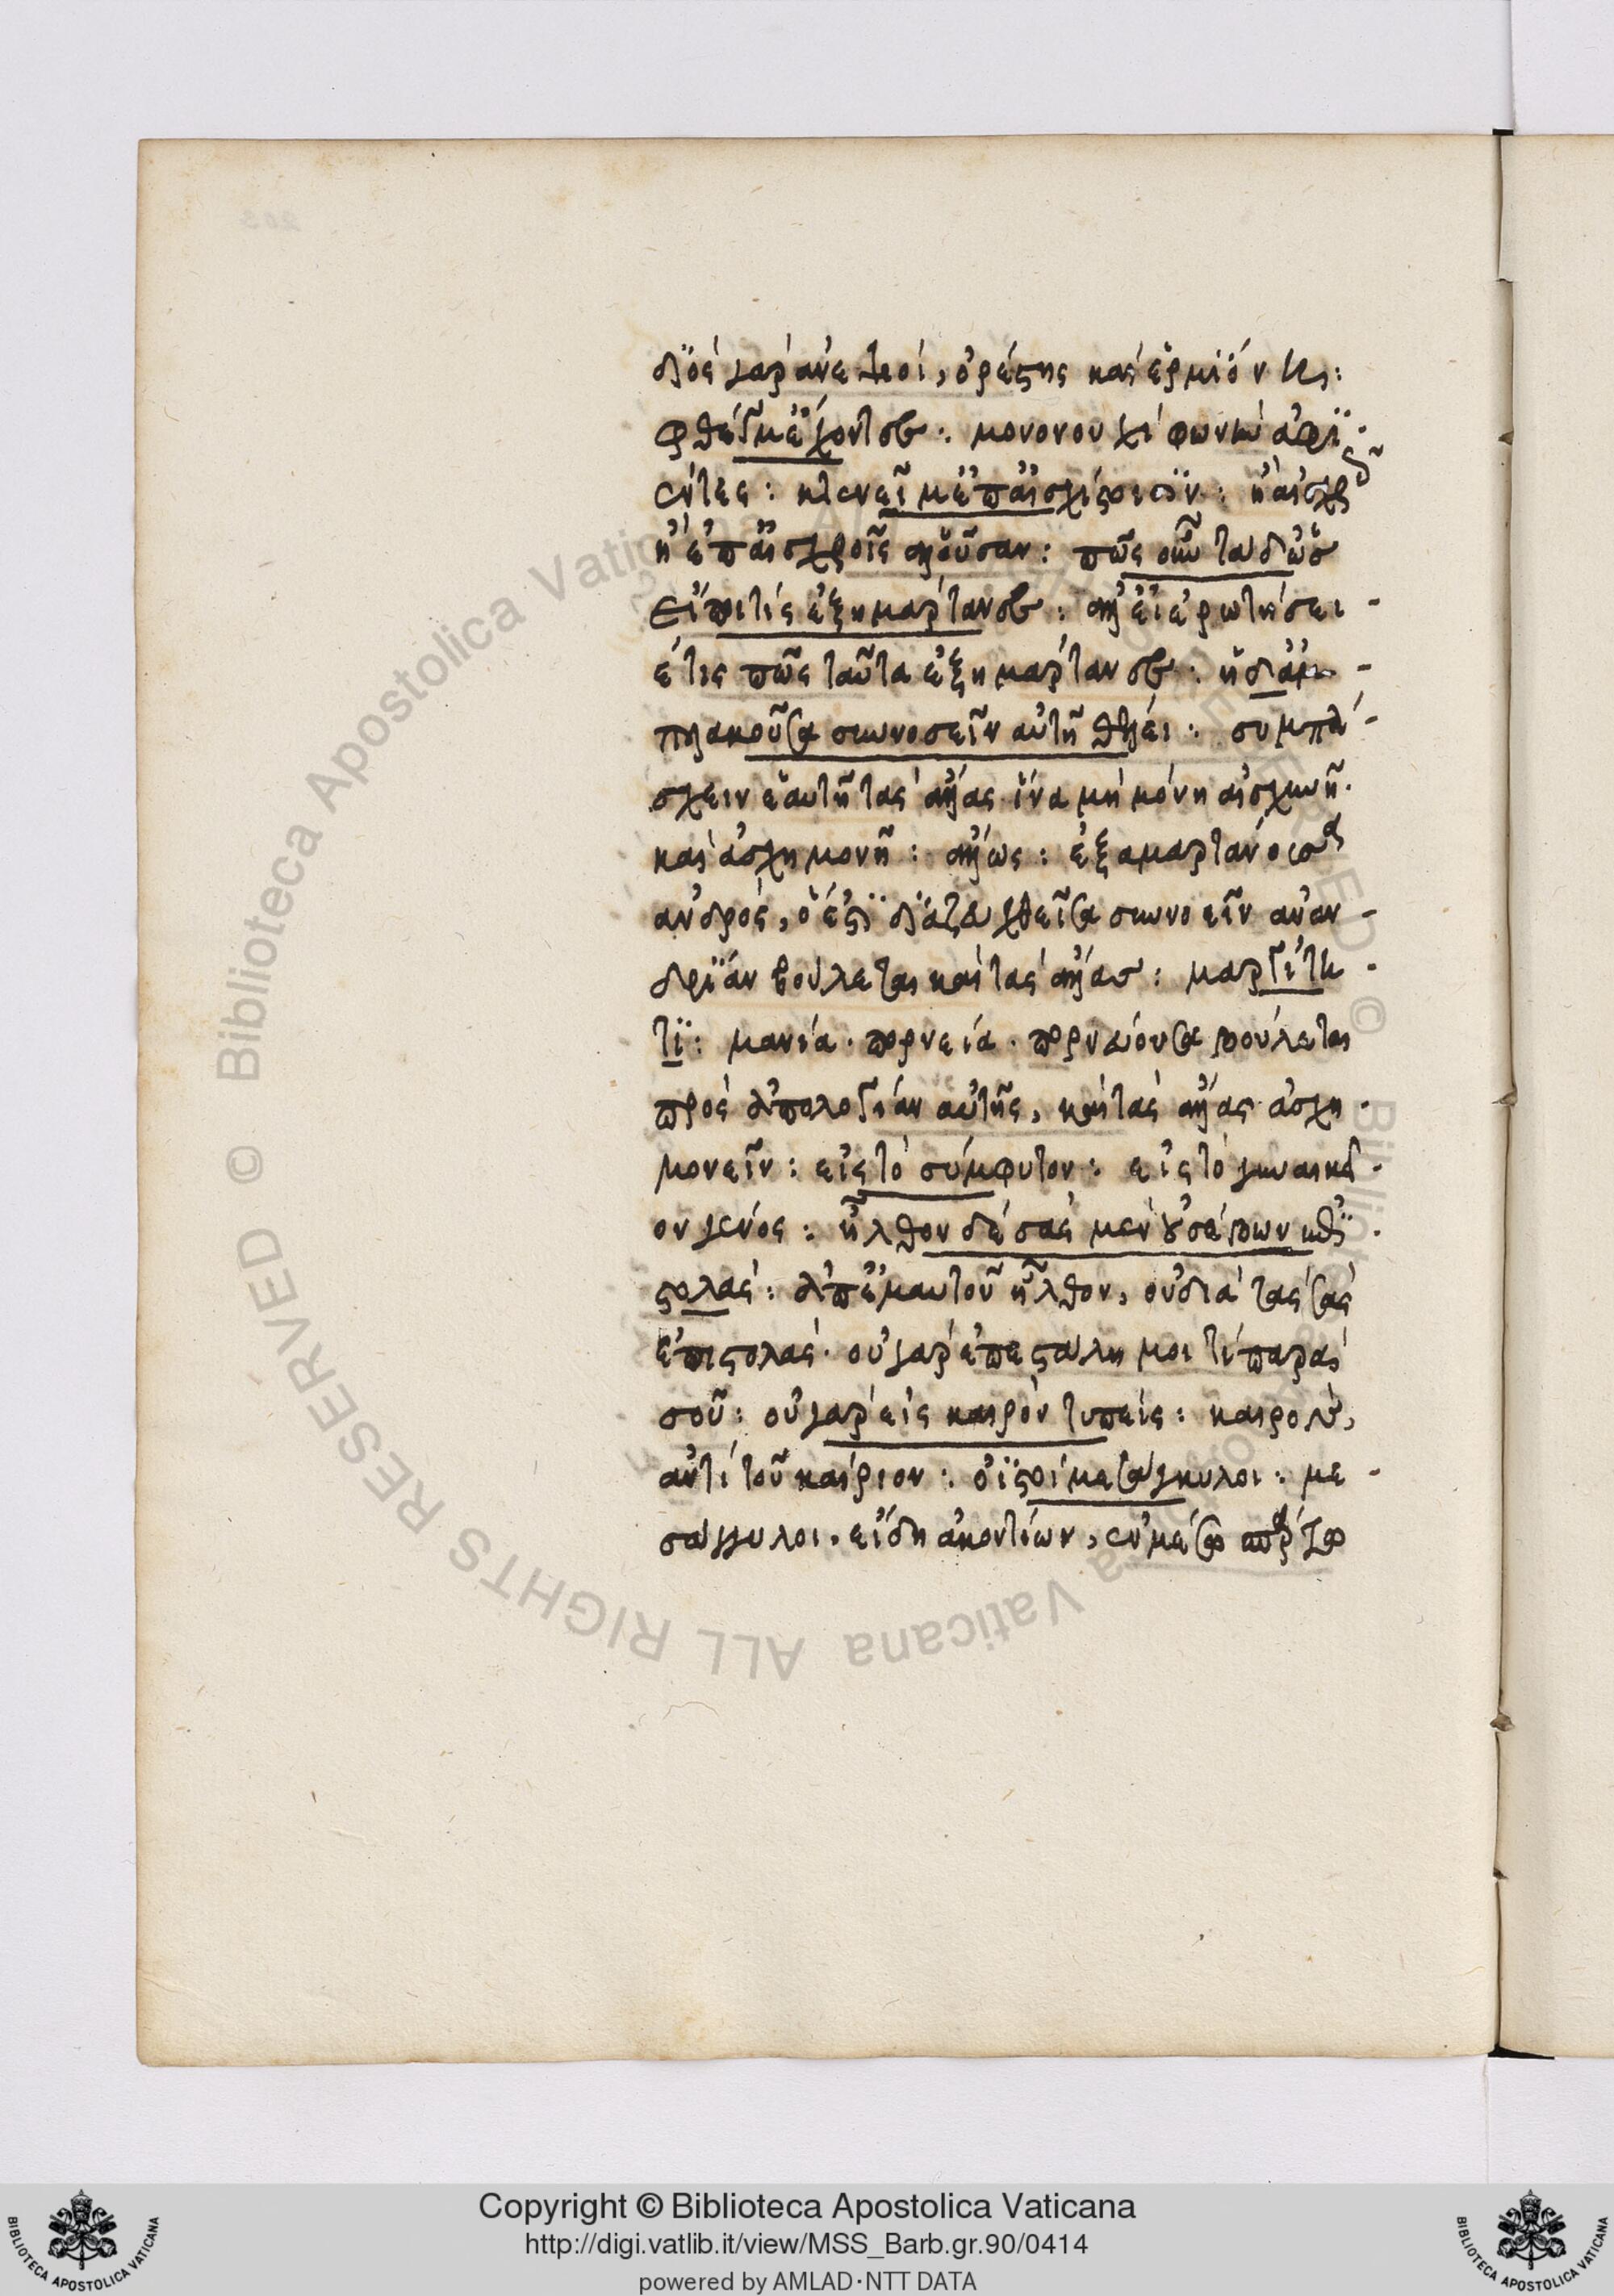 δύο γὰρ ἀνεψιοί, ὀρέστης καὶ ἑρμιόνη:
φθέγμ' ἔχοντες: μονονουχὶ φωνὴν ἀφι-
έντες: κλονεῖ μ' ἐπ' αἰσχίστοισιν: ἢ αἰσχρῶς
ἢ ἐπ' αἰσχροῖς ἀλοῦσαν: πῶς οὖν τάδ' ὡς
εἴποι τις ἐξημάρτανες: ἀλλ' εἰ ἐρωτήσει-
έ τις πῶς ταῦτα ἐξημάρτανες: ἡ δ' ἀμ-
πλακοῦσα συννοσεῖν αὐτῇ θέλει: συμπά-
σχειν ἑαυτῇ τὰς ἄλλας ἵνα μὴ μόνη αἰσχύνῃ.
καὶ ἀσχημονῇ: ἄλλως: ἐξαμαρτάνουσα
ἀνδρός, ὅ ἐστι διαζευχθεῖσα συννοσεῖν ἀναν-
δρίαν βούλεται καὶ τὰς ἄλλας: μαργότη-
τι: μανία. πορνεία. πορνεύουσα βούλεται
πρὸς ἀπολογίαν αὐτῆς, καὶ τὰς ἄλλας ἀσχη-
μονεῖν: εἰς τὸ σύμφυτον: εἰς τὸ γυναικεῖ-
ον γένος: ἦλθον δὲ σὰς μὲν οὐ σέβων ἐπι-
στολάς: ἀπ' ἐμαυτοῦ ἦλθον, οὐ διὰ τὰς σὰς
ἐπιστολάς. οὐ γὰρ ἐπεστάλη μοι τὶ παρὰ
σοῦ: οὐ γὰρ εἰς καιρὸν τυπείς: καιρὸν,
ἀντὶ τοῦ καίριον: οἰστοὶ μεσάγκυλοι: με-
σάγκυλοι. εἴδη ἀκοντίων, ἐν μέσῳ
Copyright © Biblioteca Apostolica Vaticana
http://digi.vatlib.it/view/MSS_Barb.gr.90/0414
powered by AMLAD·NTT DATA